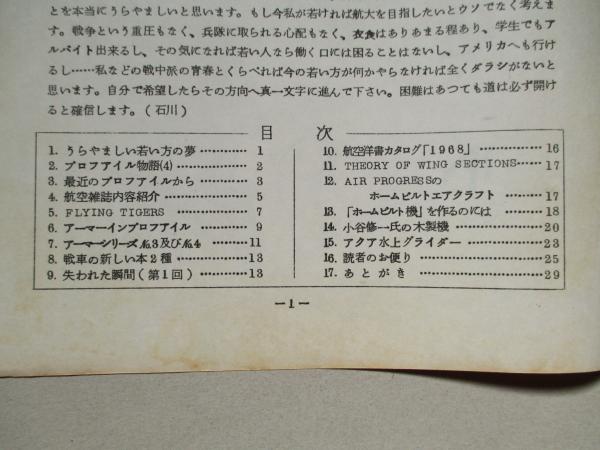 とを本当にうらやましいと思います。もし今私が若ければ航大を目指したいとウソでなく考えま
す。戦争という重圧もなく、兵隊に取られる心配もなく、衣食はありあまる程あり、学生でもア
ルバイト出来るし、その気になれば若い人なら働く口には困ることはないし、アメリカへも行け
るし……私などの戦中派の青春とくらべれば今の若い方が何かやらなければ全くダラシがないと
思います。自分で希望したらその方向へ真一文字に進んで下さい。困難はあつても道は必ず開け
ると確信します。(石川)
目次
1. うらやましい若い方の夢 ………… 1
2. プロフアイル物語(4) ………… 2
3. 最近のプロフアイルから ………… 3
4. 航空雑誌内容紹介 ………… 5
5. FLYING TIGERS ………… 7
6. アーマーインプロフアイル ………… 9
7. アーマーシリーズ№3及び№4 ………… 11
8. 戦車の新しい本2種 ………… 13
9. 失われた瞬間(第1回) ………… 13
10. 航空洋書カタログ「1968」 ………… 16
11. THEORY OF WING SECTIONS …… 17
12. AIR PROGRESSの
ホームビルトエアクラフト …… 17
13. 「ホームビルト機」を作るのには …… 18
14. 小谷修一氏の木製機 ………… 20
15. アクア水上グライダー ………… 23
16. 読者のお便り ………… 25
17. あとがき ………… 29
－1－